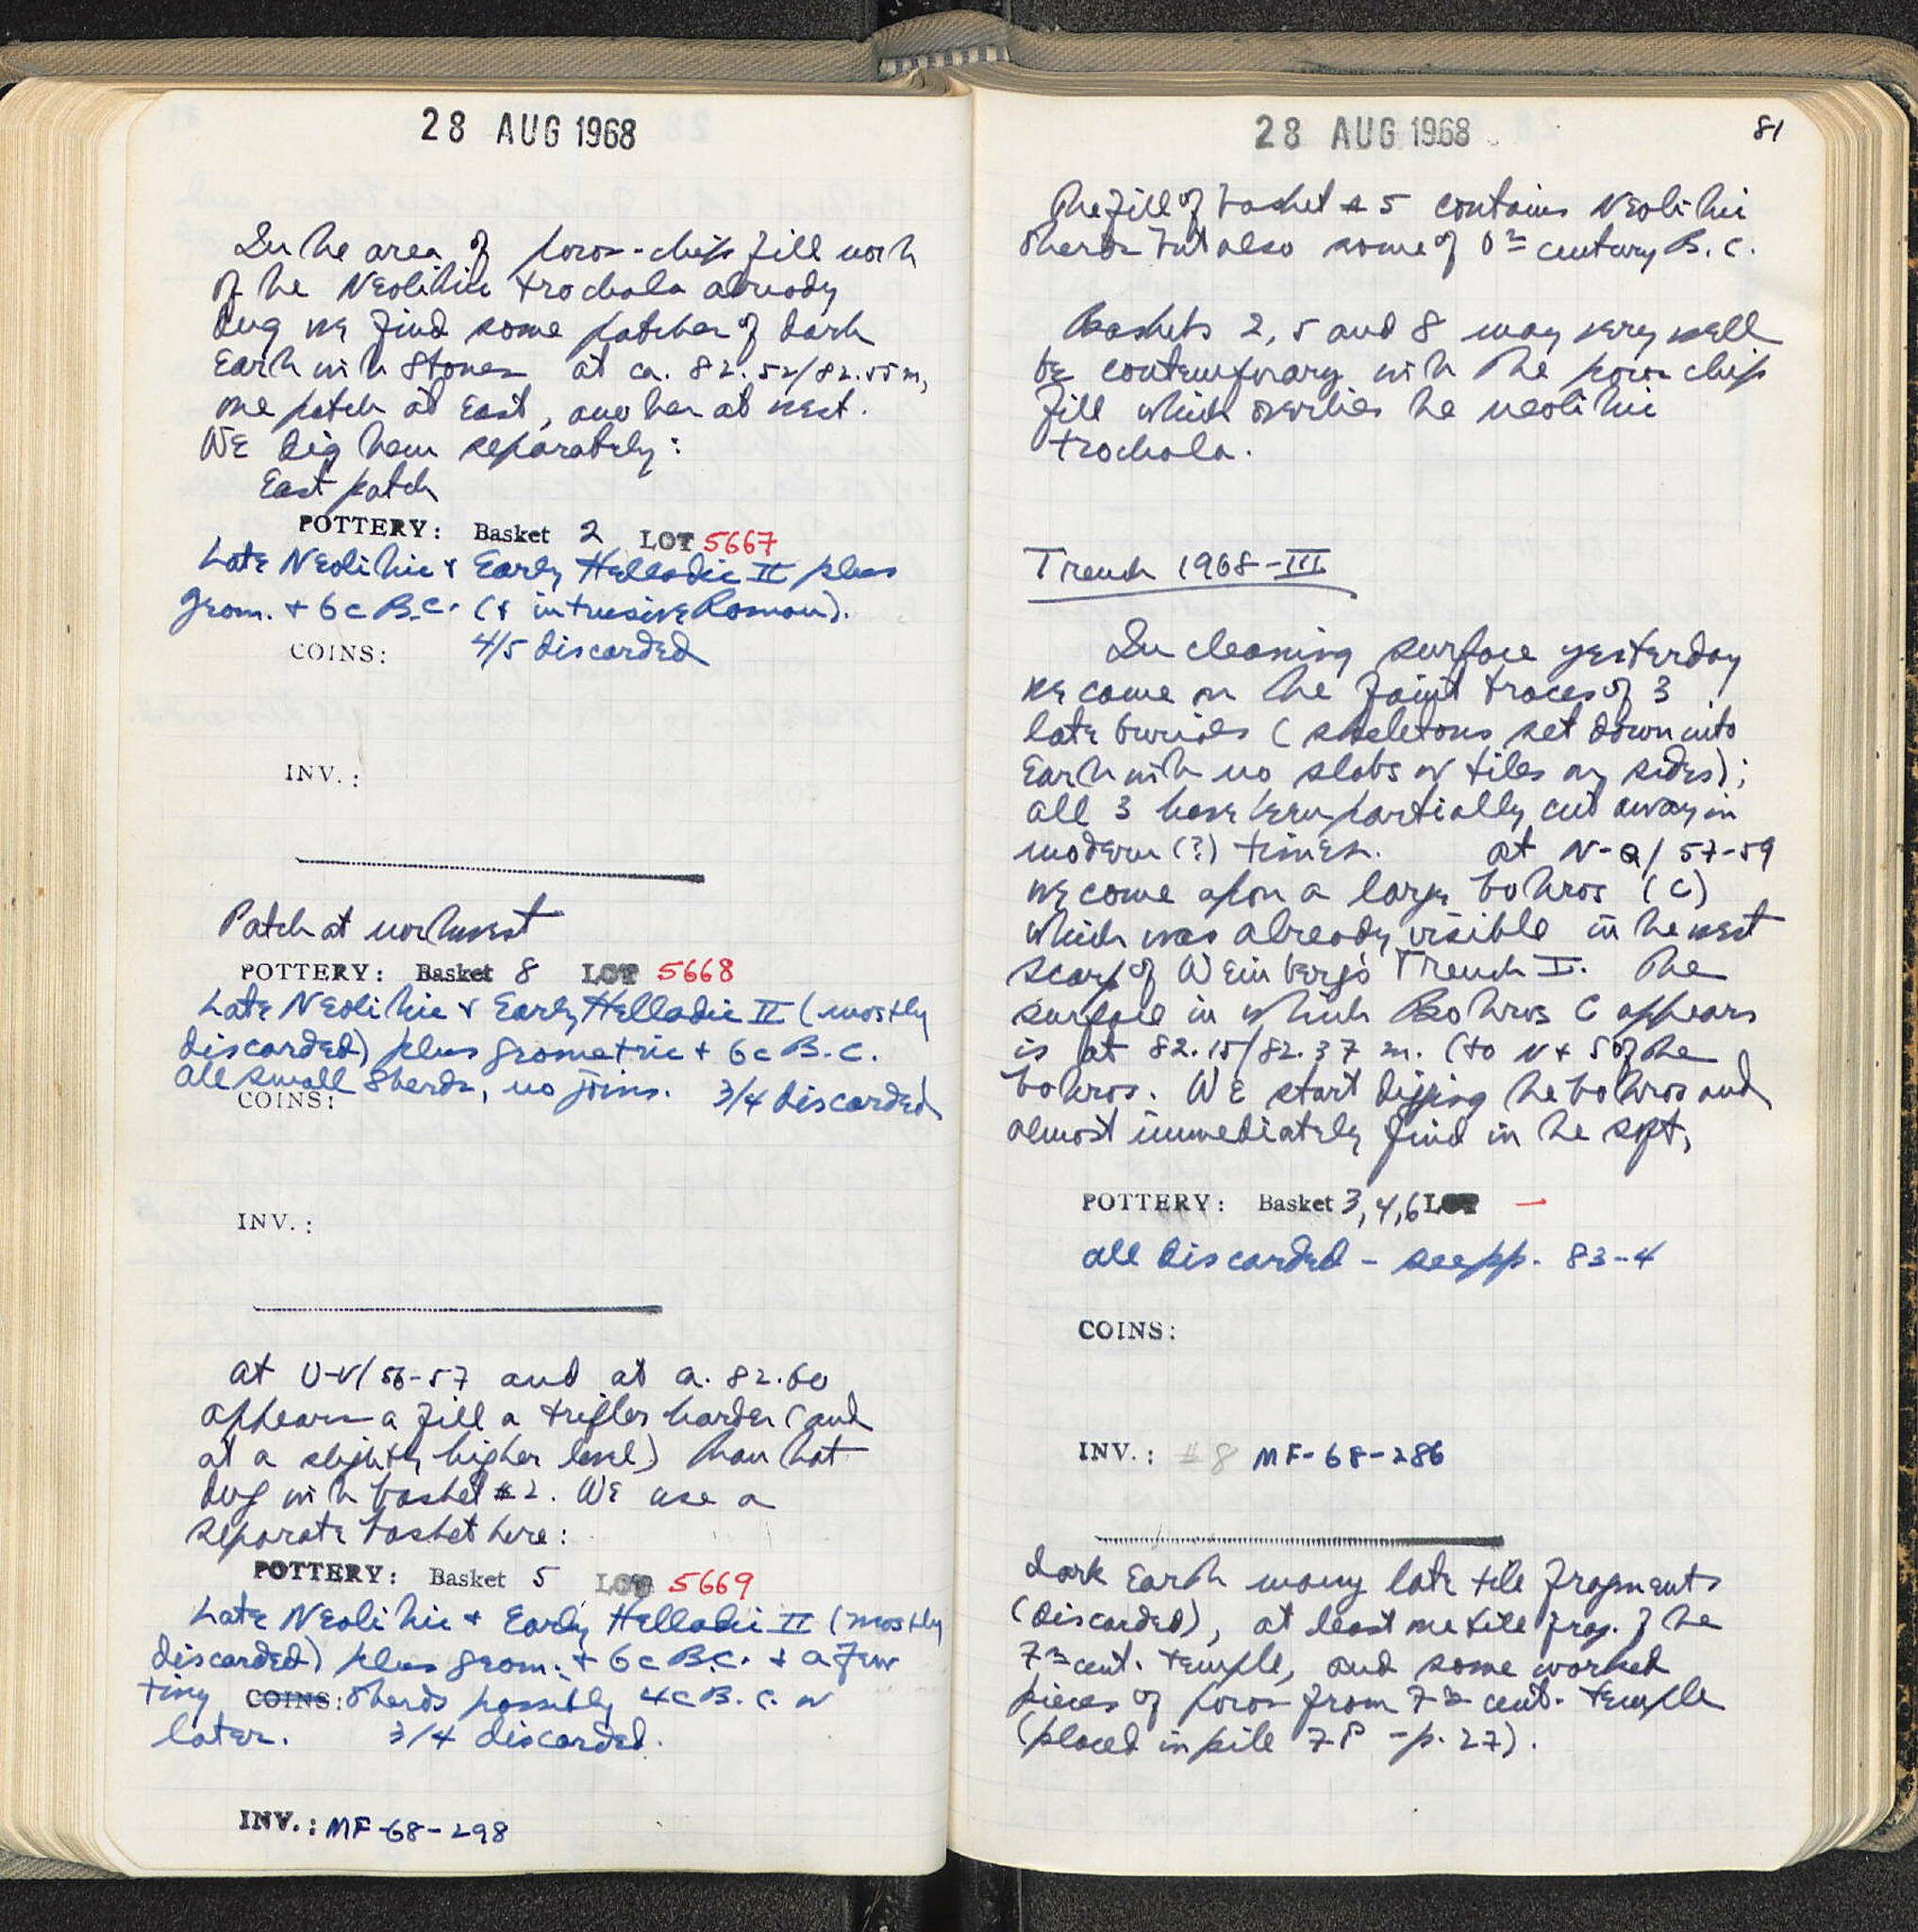 28 AUG 1968
In the area of poros-chip fill north
of the Neolithic trochala already
dug we find some patches of dark
earth with stones at ca. 82.52/82.55 m,
one patch at east, another at west.
We dig them separately:
East patch
POTTERY: Basket 2 LOT 5667
Late Neolithic & Early Helladic II plus
Geom. + 6c B.C. (& intrusive Roman).
COINS: 4/5 discarded
INV.:
Patch at northwest
POTTERY: Basket 8 LOT 5668
Late Neolithic & Early Helladic II (mostly
discarded) plus geometric + 6c B.C.
All small sherds, no joins. 3/4 discarded
COINS:
INV.:
At U-V/56-57 and at a. 82.60
appears a fill a trifle harder (and
at a slightly higher level) than that
dug with basket #2. We use a
separate basket here:
POTTERY: Basket 5 LOT 5669
Late Neolithic + Early Helladic II (mostly
discarded) plus geom. + 6c B.C. + a few
tiny COINS: sherds possibly 4c B.C. or
later. 3/4 discarded.
INV.: MF-68-298
28 AUG 1968
81
The fill of basket #5 contains Neolithic
sherds but also some of 6th century B.C.
Baskets 2, 5 and 8 may very well
be contemporary with the poros chip
fill which overlies the neolithic
trochala.
Trench 1968-III
In cleaning surface yesterday
we came on the faint traces of 3
late burials (skeletons set down into
earth with no slabs or tiles on sides);
all 3 have been partially cut away in
modern (?) times. At N-Q/57-59
we come upon a large bothros (C)
which was already visible in the west
scarp of Weinberg's Trench I. The
surface in which Bothros C appears
is at 82.15/82.37 m. (to N + S of the
bothros. We start digging the bothros and
almost immediately find in the soft,
POTTERY: Basket 3,4,6 LOT —
all discarded - see pp. 83-4
COINS:
INV.: #8 MF-68-286
dark earth many late tile fragments
(discarded), at least one tile frag. of the
7th cent. temple, and some worked
pieces of poros from 7th cent. temple
(placed in pile 7P - p. 27).